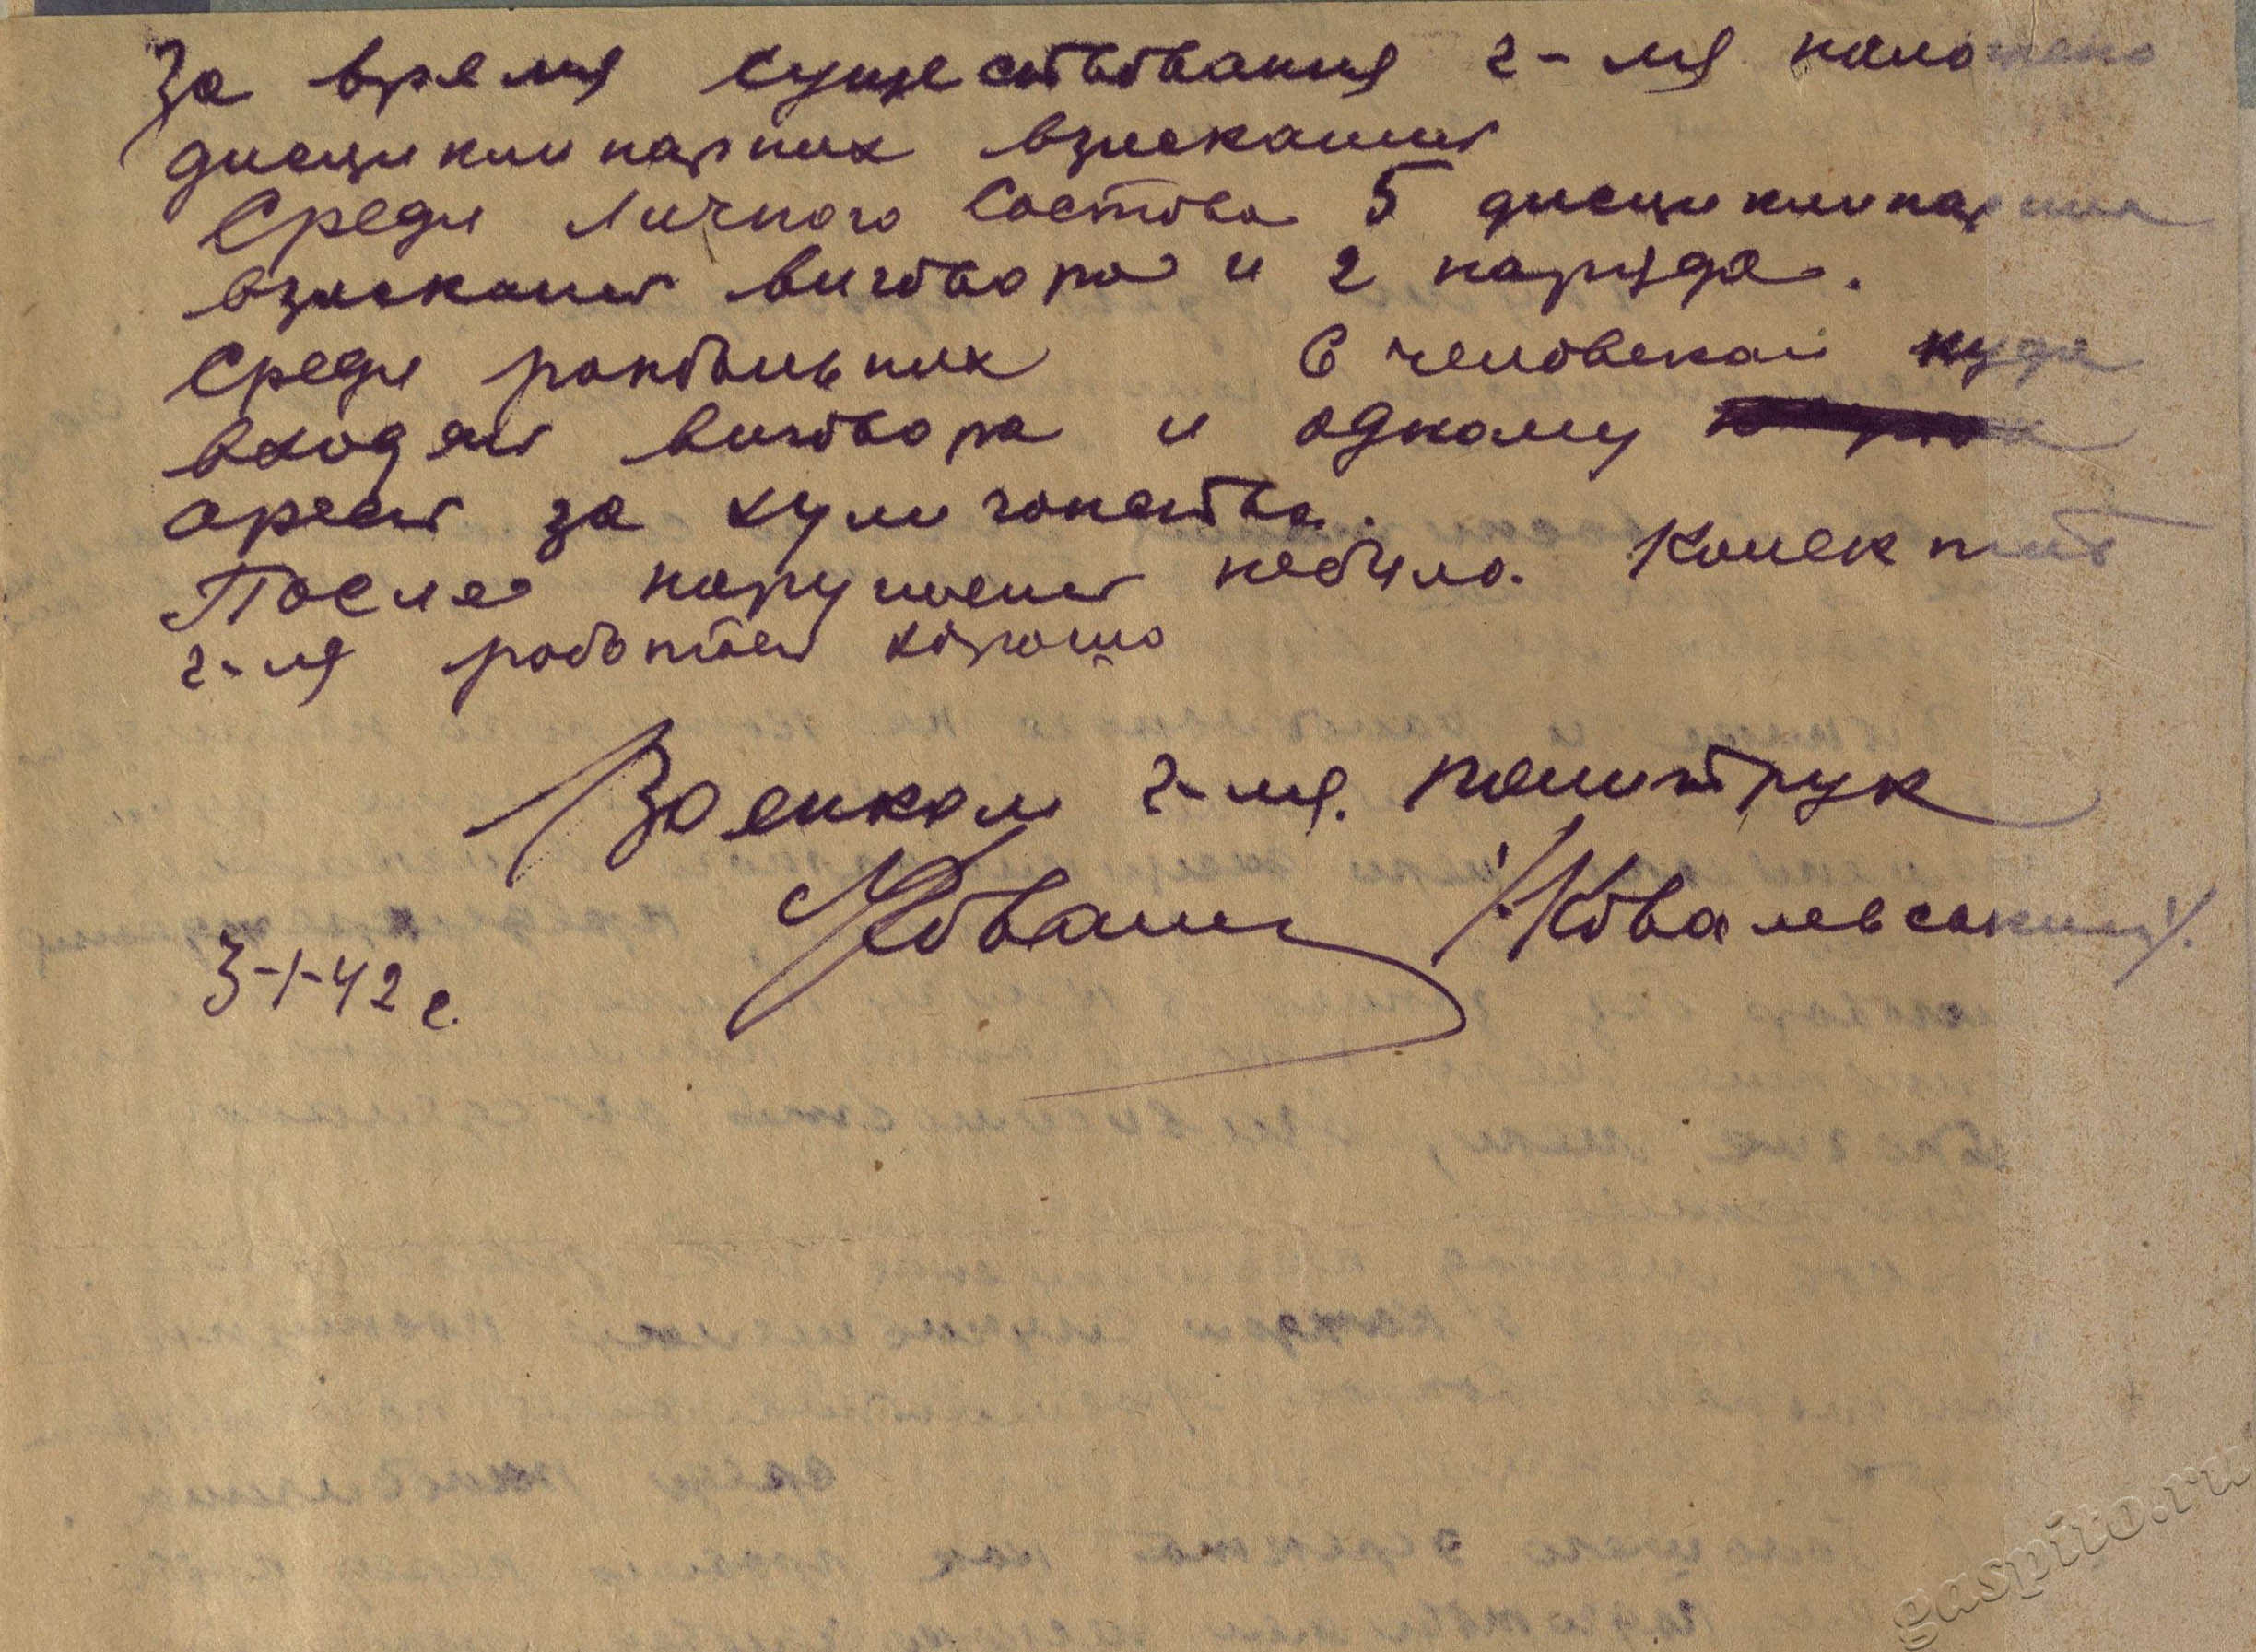 За время существования г-ля наложено
дисциплинарних взискания
Среди личного состова 5 дисциплинарних
взискания виговора и 2 наряда.
Среди ранбольних 6 человекам куда
входят виговора и одному
арест за хулигонства.
После нарушения небило. Колектив
г-ля работает хорошо
Военком г-ля. политрук
/Ковалевський/.
3-1-42 г.
gaspito.ru